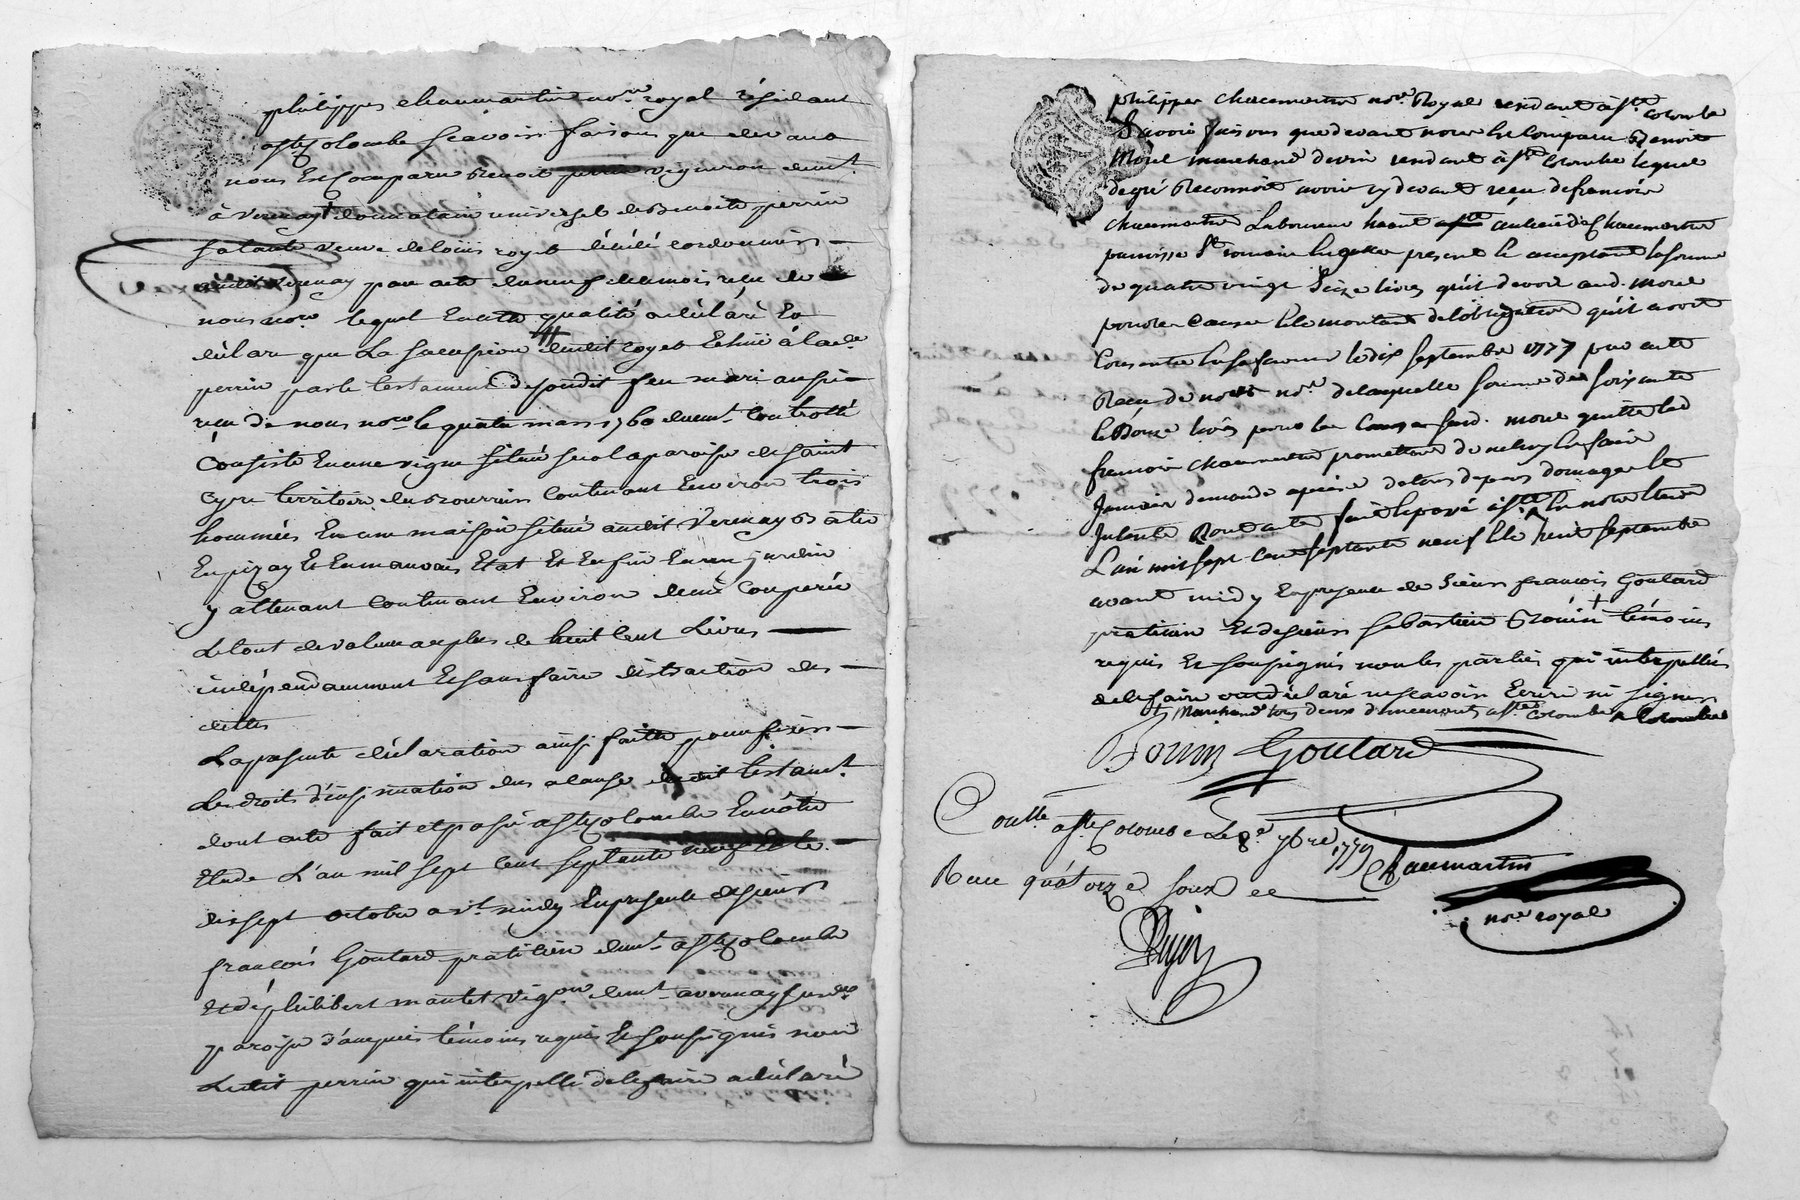 philippes chaumartin no.re royal résidant
a ste colombe scavoir faisons que devant
nous Est Comparu Benoit vigneron demt.
à Vernay donnataire universel de Benoite perrin
sa tante veuve de louis royet décédé cordonnier
audit Vernay par acte du neuf du mois reçu de
nous nore. lequel En cette qualité a déclaré Et
déclare que La succession dudit royet Echue à lade.
perrin par le testament de sondit feu mari aussi
reçu de nous nore. le quatre mars 1760 duemt. Controllé
Consiste En une vigne située sur la paroisse de saint
Cyr territoire du Contenant Environ trois
hommées En une maison située audit Vernay Batie
En pizay Et En mauvais Etat Et Enfin En un jardin
y attenant Contenant Environ demi Couperée
Le tout de valeur au plus de huit Cent Livres
indépendamment Et sans faire distraction des
dettes
La présente déclaration ainsi faitte pour fixer
Les droits d'insinuation du a cause dudit testamt.
dont acte fait et passé a ste Colombe En nôtre
Etude L'an mil sept Cent septante neuf Et le
dix sept octobre avt. midy En presence de sieurs
françois Goutard pratitien demt. a ste Colombe
Et de philibert mantet vigon. demt. a vernay susde.
paroisse d'ampuis témoins requis Et soussignés non
Ledit perrin qui interpellé de le faire a déclaré
philippes chaumartin nore. Royal residant à ste. Colombe
Savoir faisons que devant nous Est Comparu Benoit
Morel marchand de vin residant à ste Colombe lequel
de gré Reconnoit avoir cy devant reçu de francois
chaumartin Laboureur habitant au lieu de Chaumartin
paroisse St romain En present Et acceptant la somme
de quatre vingt Seize livres qu'il devoit aud. morel
pour les Causes Et le montant de l'obligation qu'il avoit
Consentie En sa faveur le dix septembre 1777 par acte
Recu de nous nore. de laquelle somme de soixante
Et Douze livres pour les Causes susd. morel quitte led
francois chaumartin promettant de ne luy En faire
Jamais demande a peine de tous depens domages Et
Interets Dont acte fait Et passé à ste. En notre Etude
L'an mil sept cent septante neuf Et le huit septembre
avant midy En presence de Sieurs francois Goutard
pratitien Et de sieur sebastien Bonin témoins
requis Et soussignés non les parties qui interpellées
de le faire ont déclaré ne scavoir Ecrire ni signer
Marchand tous deux demeurants a ste Colombe
Bonin Goutard
Contlé a ste Colombe Le 8e 7bre 1779
Reçu quatorze soux
Chaumartin
nore royal